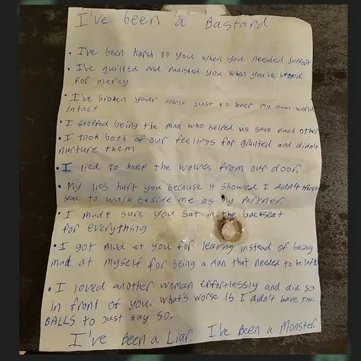 I've been a Bastard
• I've been harsh to you when you needed support
• I've guilted and punished you when you've begged
for mercy
• I've broken your spirit just to keep my own world
intact
• I stopped being the man who helped us save each other
• I took both of our feelings for granted and didn't
nurture them
• I lied to keep the wolves from our door
• My lies hurt you because it showed I didn't trust
you to walk beside me as my partner
• I made sure you sat in the backseat
for everything
• I got mad at you for leaving instead of being
mad at myself for being a man that needed to be left
• I loved another woman effortlessly and did so
in front of you. what's worse is I didn't have the
BALLS to just say so.
I've been a Liar I've been a Monster